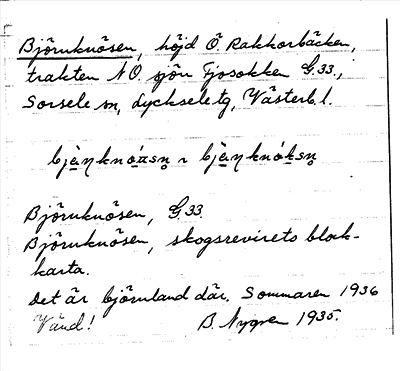 Björnknösen, höjd Ö. Rakkorbäcken,
trakten N Ö. sjön Fjosokken G.33.,
Sorsele sn, Lycksele tg, Västerb. l.
Björnknösen, G 33.
Björnknösen, skogsrevirets block-
karta.
Det är björnland där. Sommaren 1936
Vänd! B. Nygren 1935.